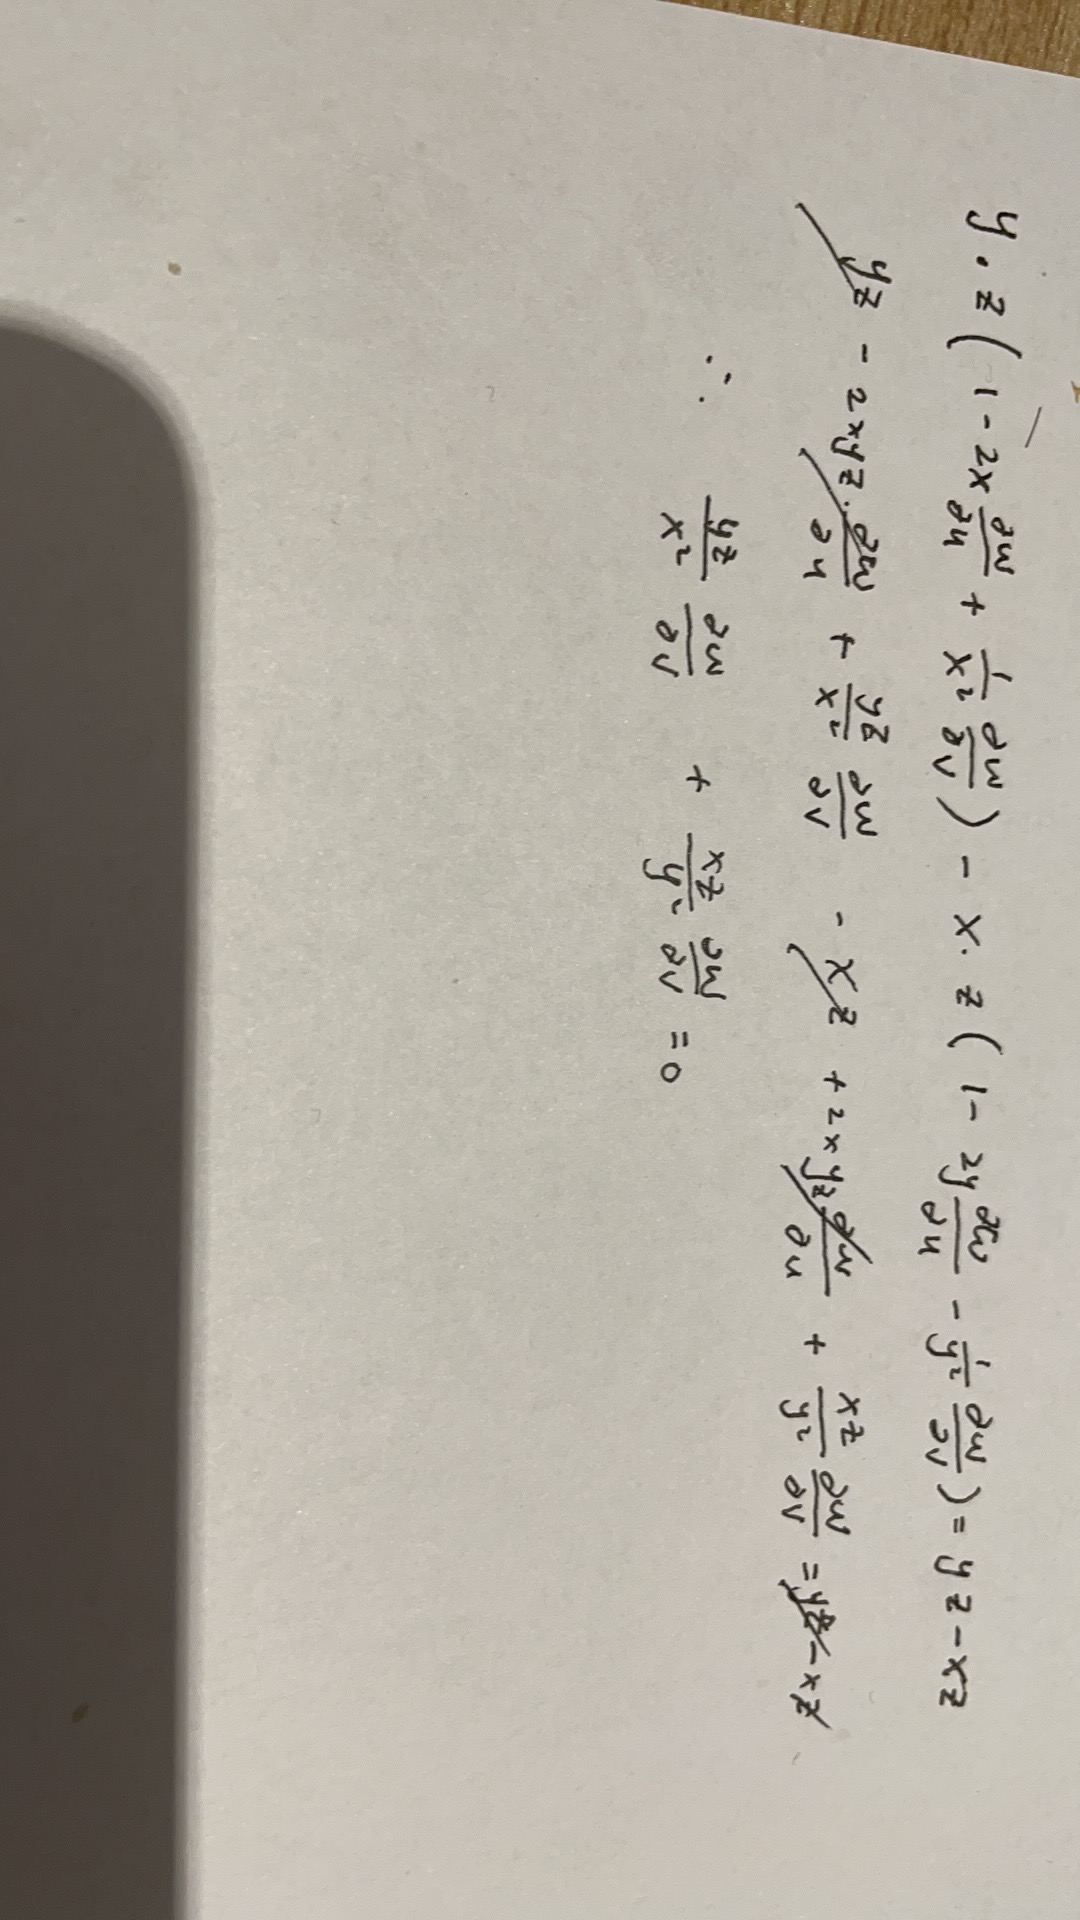 y · z ( 1 - 2x ∂w/∂u + 1/x² ∂w/∂v ) - x · z ( 1 - 2y ∂w/∂u - 1/y² ∂w/∂v ) = yz - xz
yz - 2xyz · ∂w/∂u + yz/x² ∂w/∂v - xz + 2xyz ∂w/∂u + xz/y² ∂w/∂v = yz - xz
∴ yz/x² ∂w/∂v + xz/y² ∂w/∂v = 0